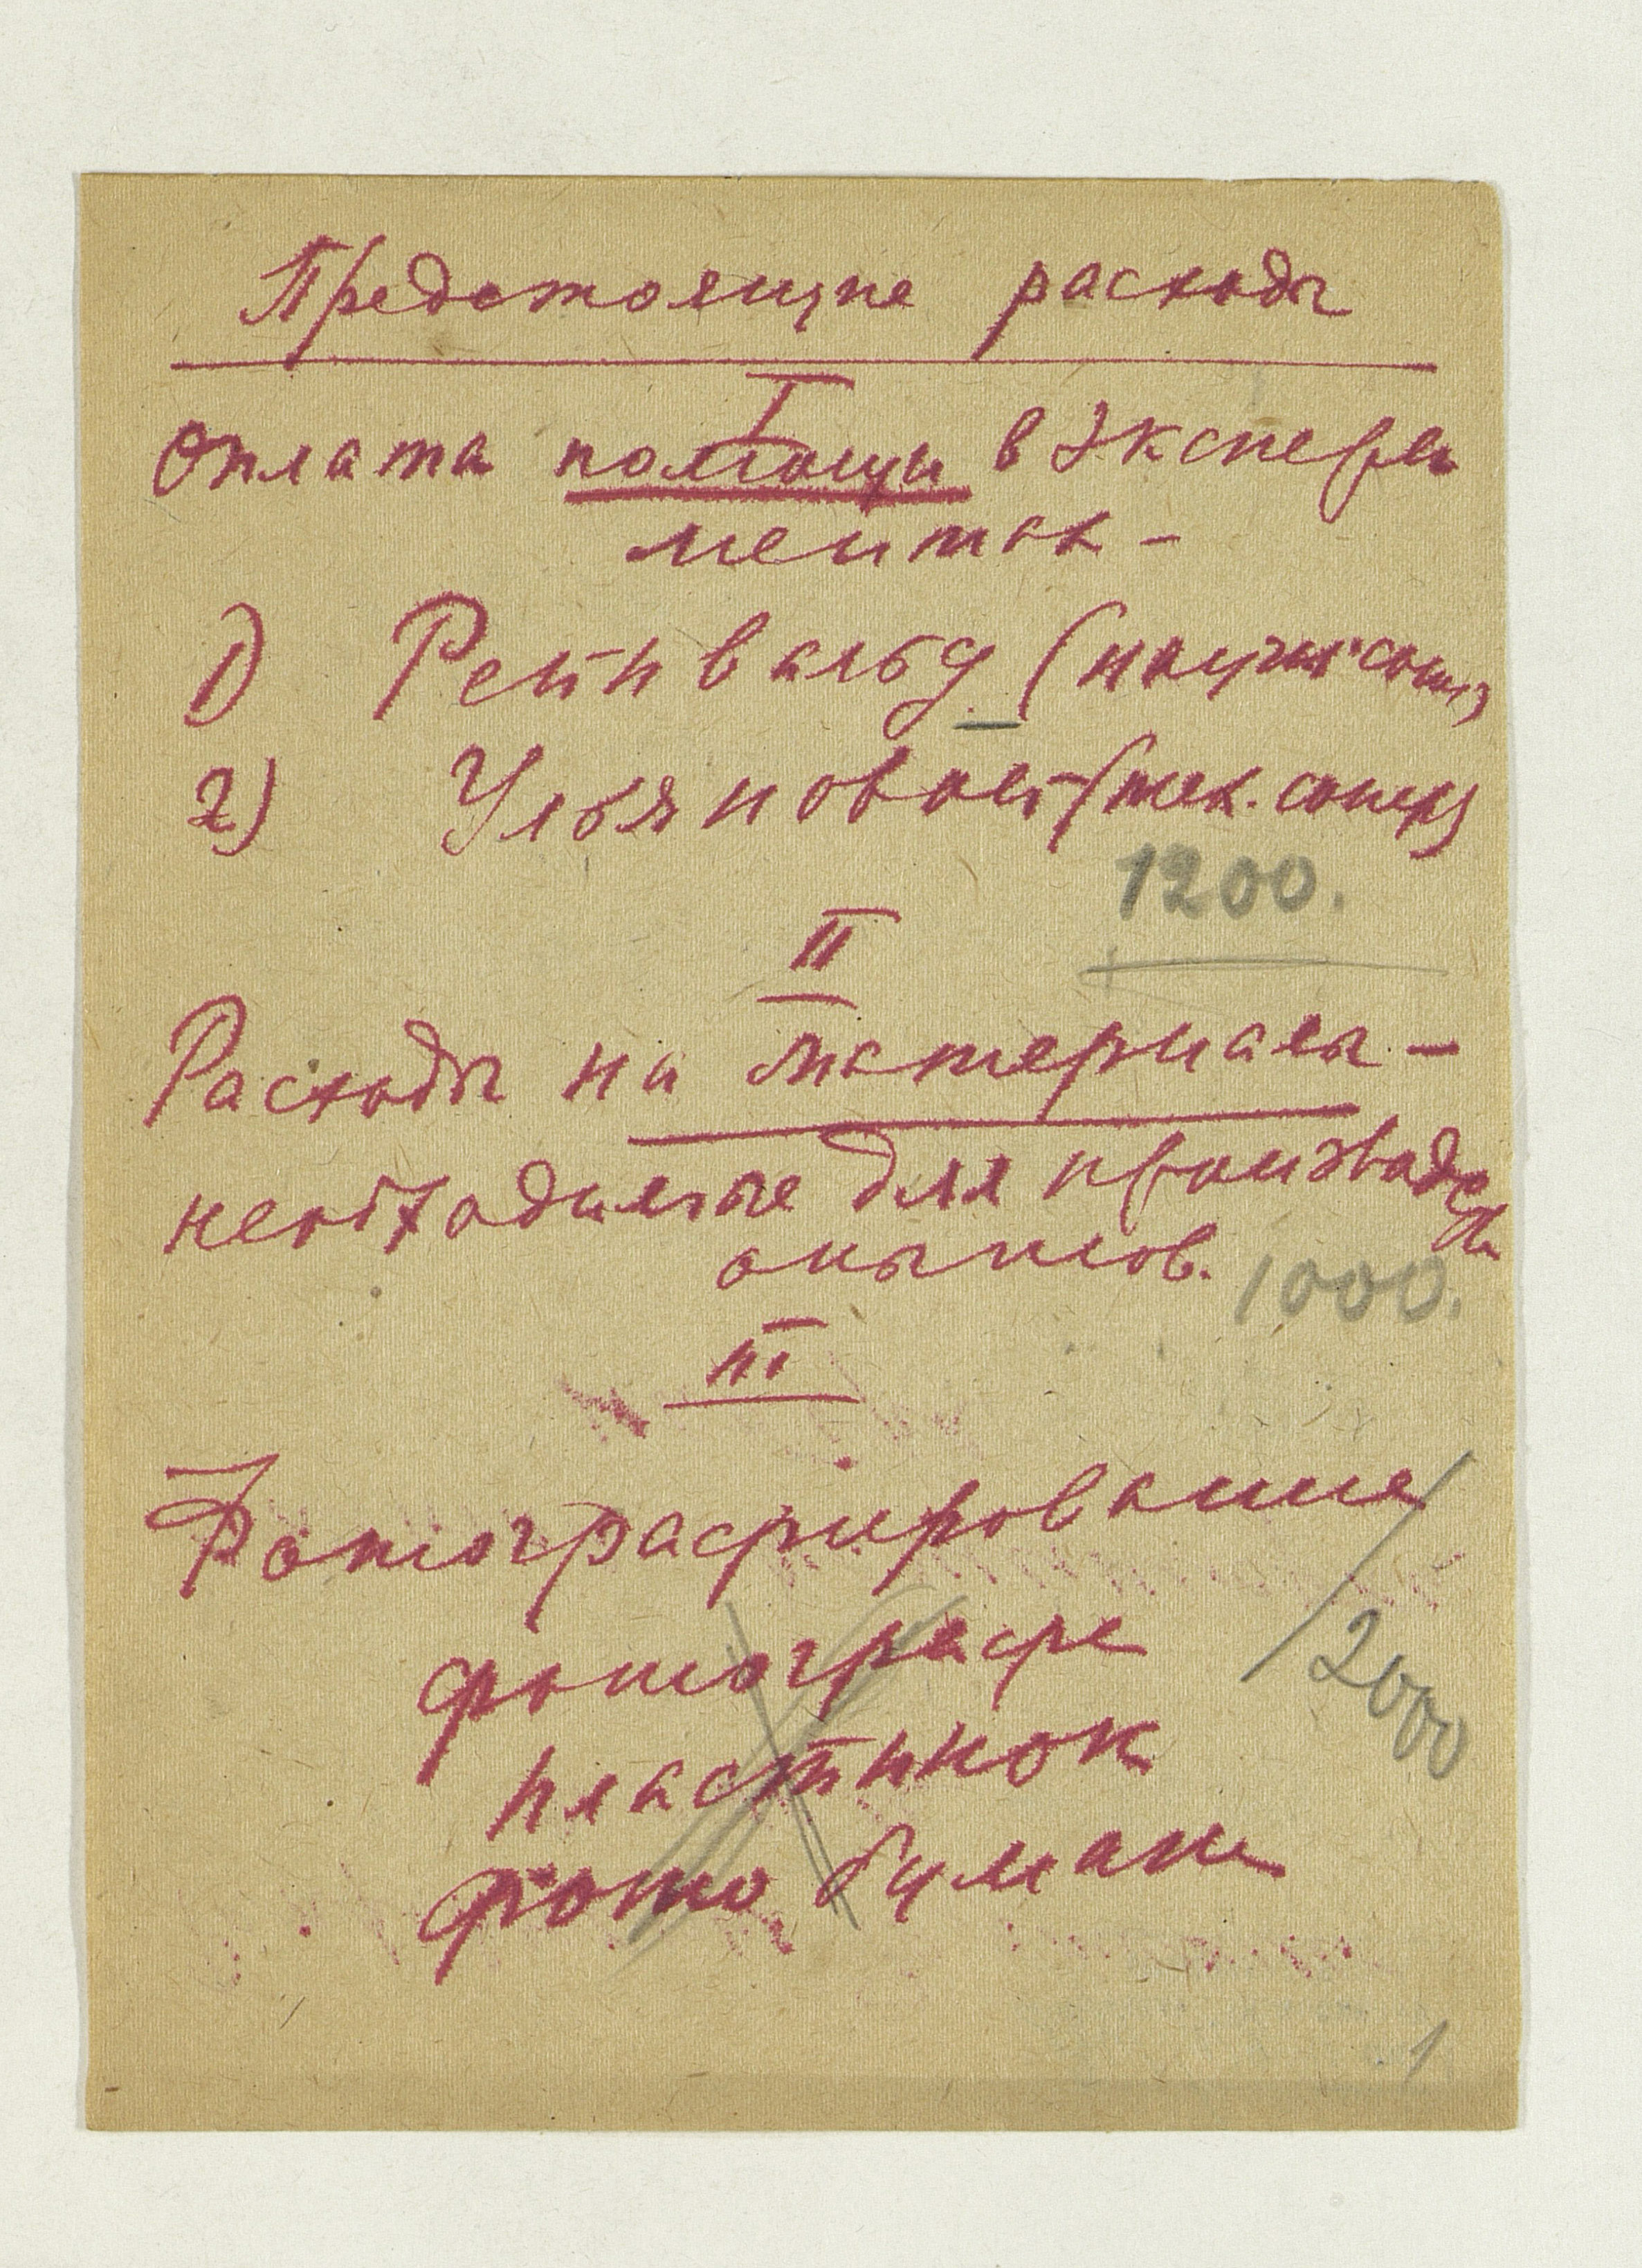 Предстоящие расходы
I
Оплата помощи в экспери
ментах –
1) Рейнвальд (научн. сотр)
2) Ульяновой – (тех. сотр)
1200.
II
Расходы на материалы –
необходимые для производства
опытов. 1000.
III
Фотографирование
фотографе
2000
пластинок
фото бумаги
1